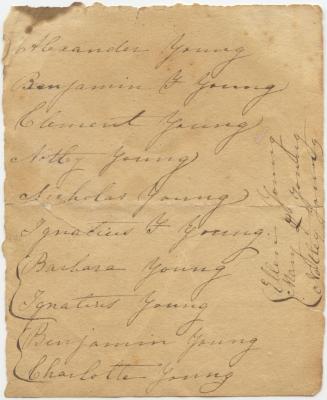 Alexander Young
Benjamin F Young
Clement Young
Notley Young
Nicholas Young
Ignatius F Young
Barbara Young
Ignatius Young
Benjamin Young
Charlotte Young
Ellen Young
Mary L Young
Notley Young